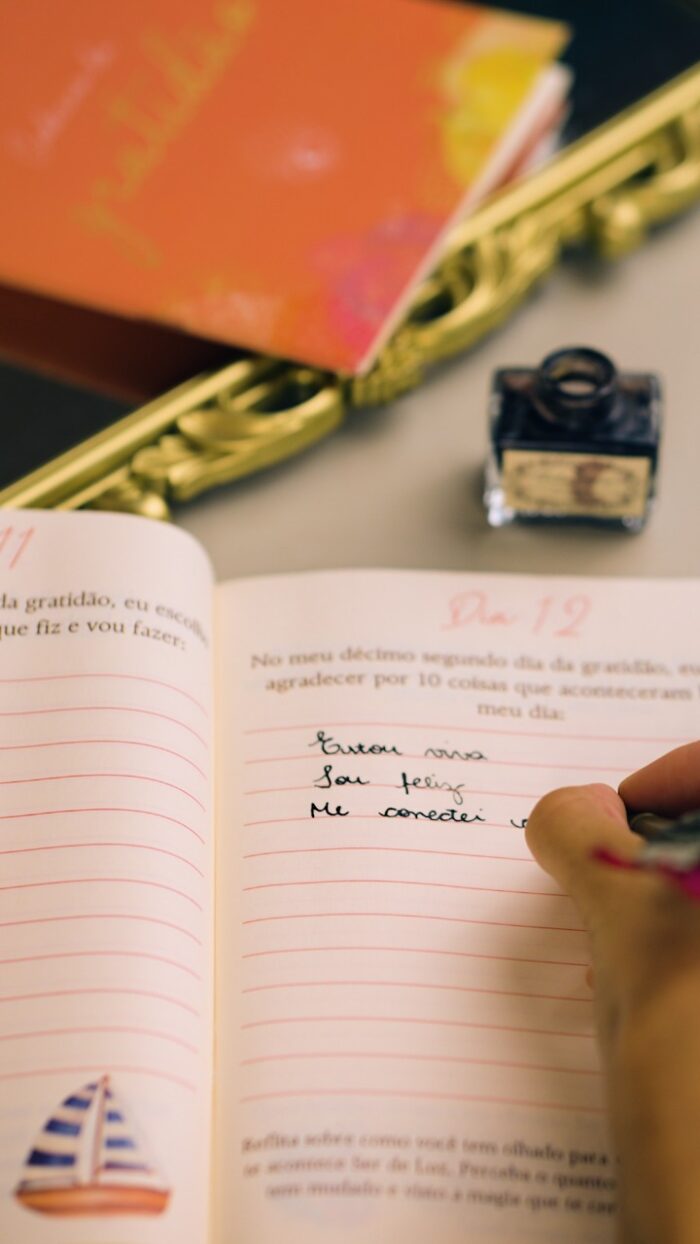 gratidão
11
da gratidão, eu escolh
que fiz e vou fazer:
Dia 12
No meu décimo segundo dia da gratidão, eu
agradecer por 10 coisas que aconteceram
meu dia:
Estou viva
Sou feliz
Me conectei
Reflita sobre como você tem olhado para
se acontece Ser de Luz. Perceba o quanto
tem mudado e visto a magia que te